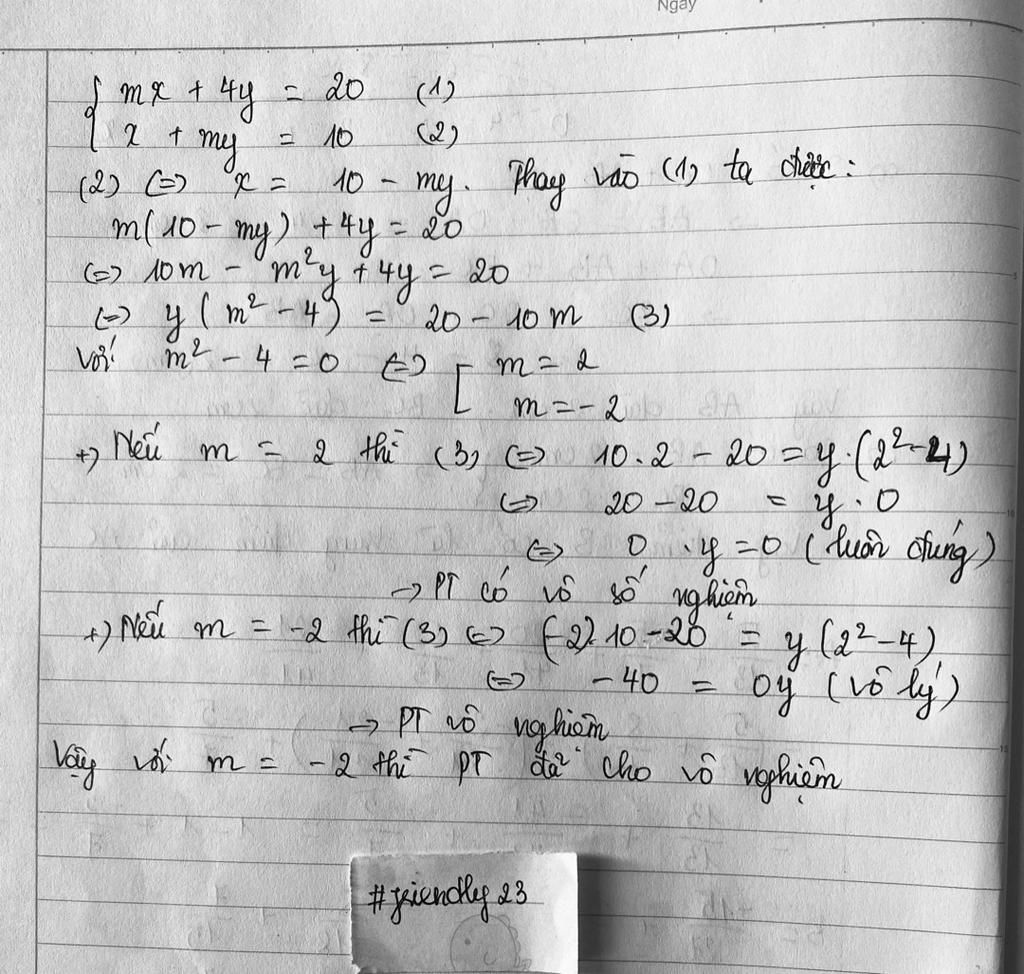 Ngày
{ mx + 4y = 20 (1)
x + my = 10 (2)
(2) <=> x = 10 - my. Thay vào (1) ta được:
m(10 - my) + 4y = 20
<=> 10m - m²y + 4y = 20
<=> y(m² - 4) = 20 - 10m (3)
Với m² - 4 = 0 <=> [ m = 2
m = -2
+) Nếu m = 2 thì (3) <=> 10.2 - 20 = y.(2² - 4)
<=> 20 - 20 = y.0
<=> 0.y = 0 (luôn đúng)
-> PT có vô số nghiệm
+) Nếu m = -2 thì (3) <=> (-2).10 - 20 = y(2² - 4)
<=> -40 = 0y (vô lý)
-> PT vô nghiệm
Vậy với m = -2 thì PT đã cho vô nghiệm
#friendly23